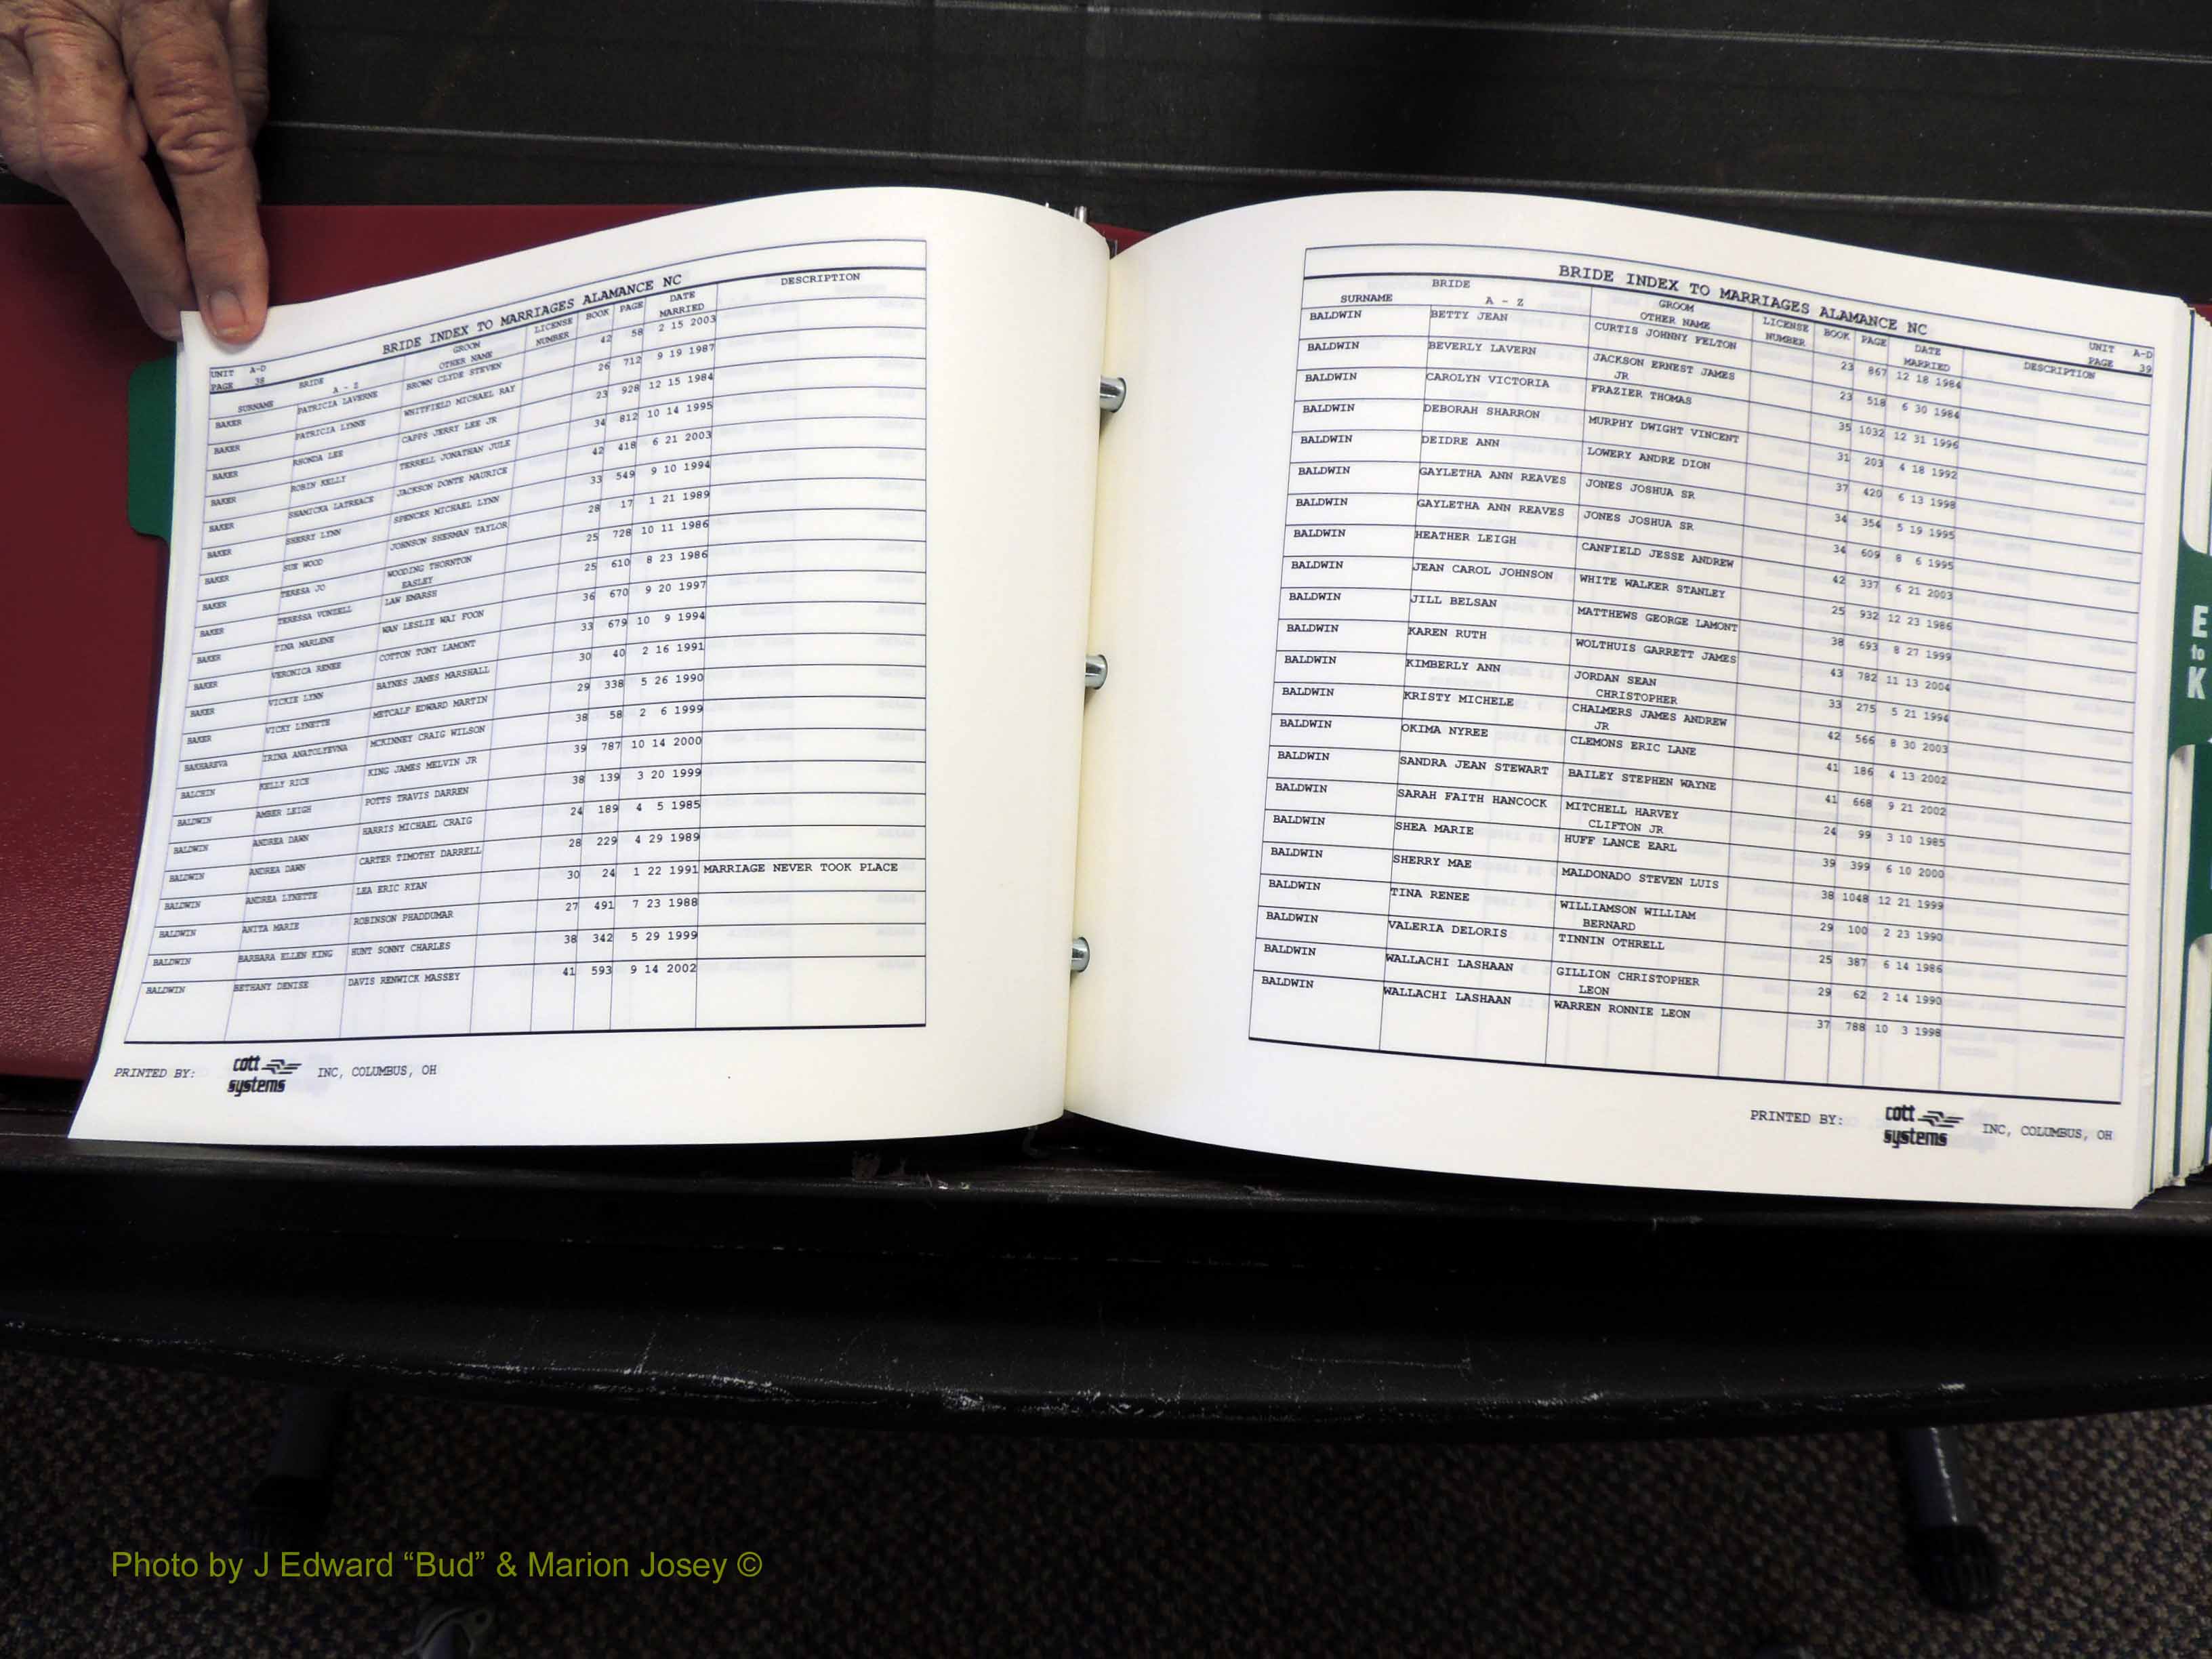 BRIDE INDEX TO MARRIAGES ALAMANCE NC
UNIT A-D
PAGE 38
BRIDE GROOM LICENSE BOOK PAGE DATE DESCRIPTION
SURNAME A - Z OTHER NAME NUMBER MARRIED
BAKER PATRICIA LAVERNE BROWN CLYDE STEVEN 42 58 2 15 2003
BAKER PATRICIA LYNNE WHITFIELD MICHAEL RAY 26 712 9 19 1987
BAKER RHONDA LEE CAPPS JERRY LEE JR 23 928 12 15 1984
BAKER ROBIN KELLY TERRELL JONATHAN JULE 34 812 10 14 1995
BAKER SHAMICKA LATREACE JACKSON DONTE MAURICE 42 418 6 21 2003
BAKER SHERRY LYNN SPENCER MICHAEL LYNN 33 549 9 10 1994
BAKER SUE WOOD JOHNSON SHERMAN TAYLOR 28 17 1 21 1989
BAKER TERESA JO WOODING THORNTON 25 728 10 11 1986
EASLEY
BAKER TERESSA VONZELL LAW EMARSH 25 610 8 23 1986
BAKER TINA MARLENE WAN LESLIE WAI FOON 36 670 9 20 1997
BAKER VERONICA RENEE COTTON TONY LAMONT 33 679 10 9 1994
BAKER VICKIE LYNN HAYNES JAMES MARSHALL 30 40 2 16 1991
BAKER VICKY LYNETTE METCALF EDWARD MARTIN 29 338 5 26 1990
BAKHAREVA IRINA ANATOLYEVNA MCKINNEY CRAIG WILSON 38 58 2 6 1999
BALCHIN KELLY RICE KING JAMES MELVIN JR 39 787 10 14 2000
BALDWIN AMBER LEIGH POTTS TRAVIS DARREN 38 139 3 20 1999
BALDWIN ANDREA DAWN HARRIS MICHAEL CRAIG 24 189 4 5 1985
BALDWIN ANDREA DAWN CARTER TIMOTHY DARRELL 28 229 4 29 1989
BALDWIN ANDREA LYNETTE LEA ERIC RYAN 30 24 1 22 1991 MARRIAGE NEVER TOOK PLACE
BALDWIN ANITA MARIE ROBINSON PHADDUMAR 27 491 7 23 1988
BALDWIN BARBARA ELLEN KING HUNT SONNY CHARLES 38 342 5 29 1999
BALDWIN BETHANY DENISE DAVIS RENWICK MASSEY 41 593 9 14 2002
PRINTED BY: cott systems INC, COLUMBUS, OH
BRIDE INDEX TO MARRIAGES ALAMANCE NC
UNIT A-D
PAGE 39
BRIDE GROOM LICENSE BOOK PAGE DATE DESCRIPTION
SURNAME A - Z OTHER NAME NUMBER MARRIED
BALDWIN BETTY JEAN CURTIS JOHNNY FELTON 23 867 12 18 1984
BALDWIN BEVERLY LAVERN JACKSON ERNEST JAMES 23 518 6 30 1984
JR
BALDWIN CAROLYN VICTORIA FRAZIER THOMAS 35 1032 12 31 1996
BALDWIN DEBORAH SHARRON MURPHY DWIGHT VINCENT 31 203 4 18 1992
BALDWIN DEIDRE ANN LOWERY ANDRE DION 37 420 6 13 1998
BALDWIN GAYLETHA ANN REAVES JONES JOSHUA SR 34 354 5 19 1995
BALDWIN GAYLETHA ANN REAVES JONES JOSHUA SR 34 609 8 6 1995
BALDWIN HEATHER LEIGH CANFIELD JESSE ANDREW 42 337 6 21 2003
BALDWIN JEAN CAROL JOHNSON WHITE WALKER STANLEY 25 932 12 23 1986
BALDWIN JILL BELSAN MATTHEWS GEORGE LAMONT 38 693 8 27 1999
BALDWIN KAREN RUTH WOLTHUIS GARRETT JAMES 43 782 11 13 2004
BALDWIN KIMBERLY ANN JORDAN SEAN 33 275 5 21 1994
CHRISTOPHER
BALDWIN KRISTY MICHELE CHALMERS JAMES ANDREW 42 566 8 30 2003
JR
BALDWIN OKIMA NYREE CLEMONS ERIC LANE 41 186 4 13 2002
BALDWIN SANDRA JEAN STEWART BAILEY STEPHEN WAYNE 41 668 9 21 2002
BALDWIN SARAH FAITH HANCOCK MITCHELL HARVEY 24 99 3 10 1985
CLIFTON JR
BALDWIN SHEA MARIE HUFF LANCE EARL 39 399 6 10 2000
BALDWIN SHERRY MAE MALDONADO STEVEN LUIS 38 1048 12 21 1999
BALDWIN TINA RENEE WILLIAMSON WILLIAM 29 100 2 23 1990
BERNARD
BALDWIN VALERIA DELORIS TINNIN OTHRELL 25 387 6 14 1986
BALDWIN WALLACHI LASHAAN GILLION CHRISTOPHER 29 62 2 14 1990
LEON
BALDWIN WALLACHI LASHAAN WARREN RONNIE LEON 37 788 10 3 1998
PRINTED BY: cott systems INC, COLUMBUS, OH
E
to
K
Photo by J Edward “Bud” & Marion Josey ©